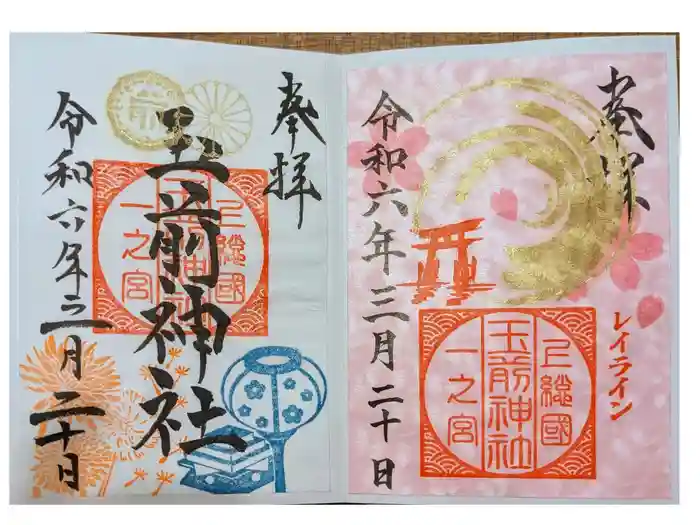 奉拝
上總國
玉前神社
一之宮
玉前神社
令和六年三月二十日
奉拝
レイライン
上總國
玉前神社
一之宮
令和六年三月二十日